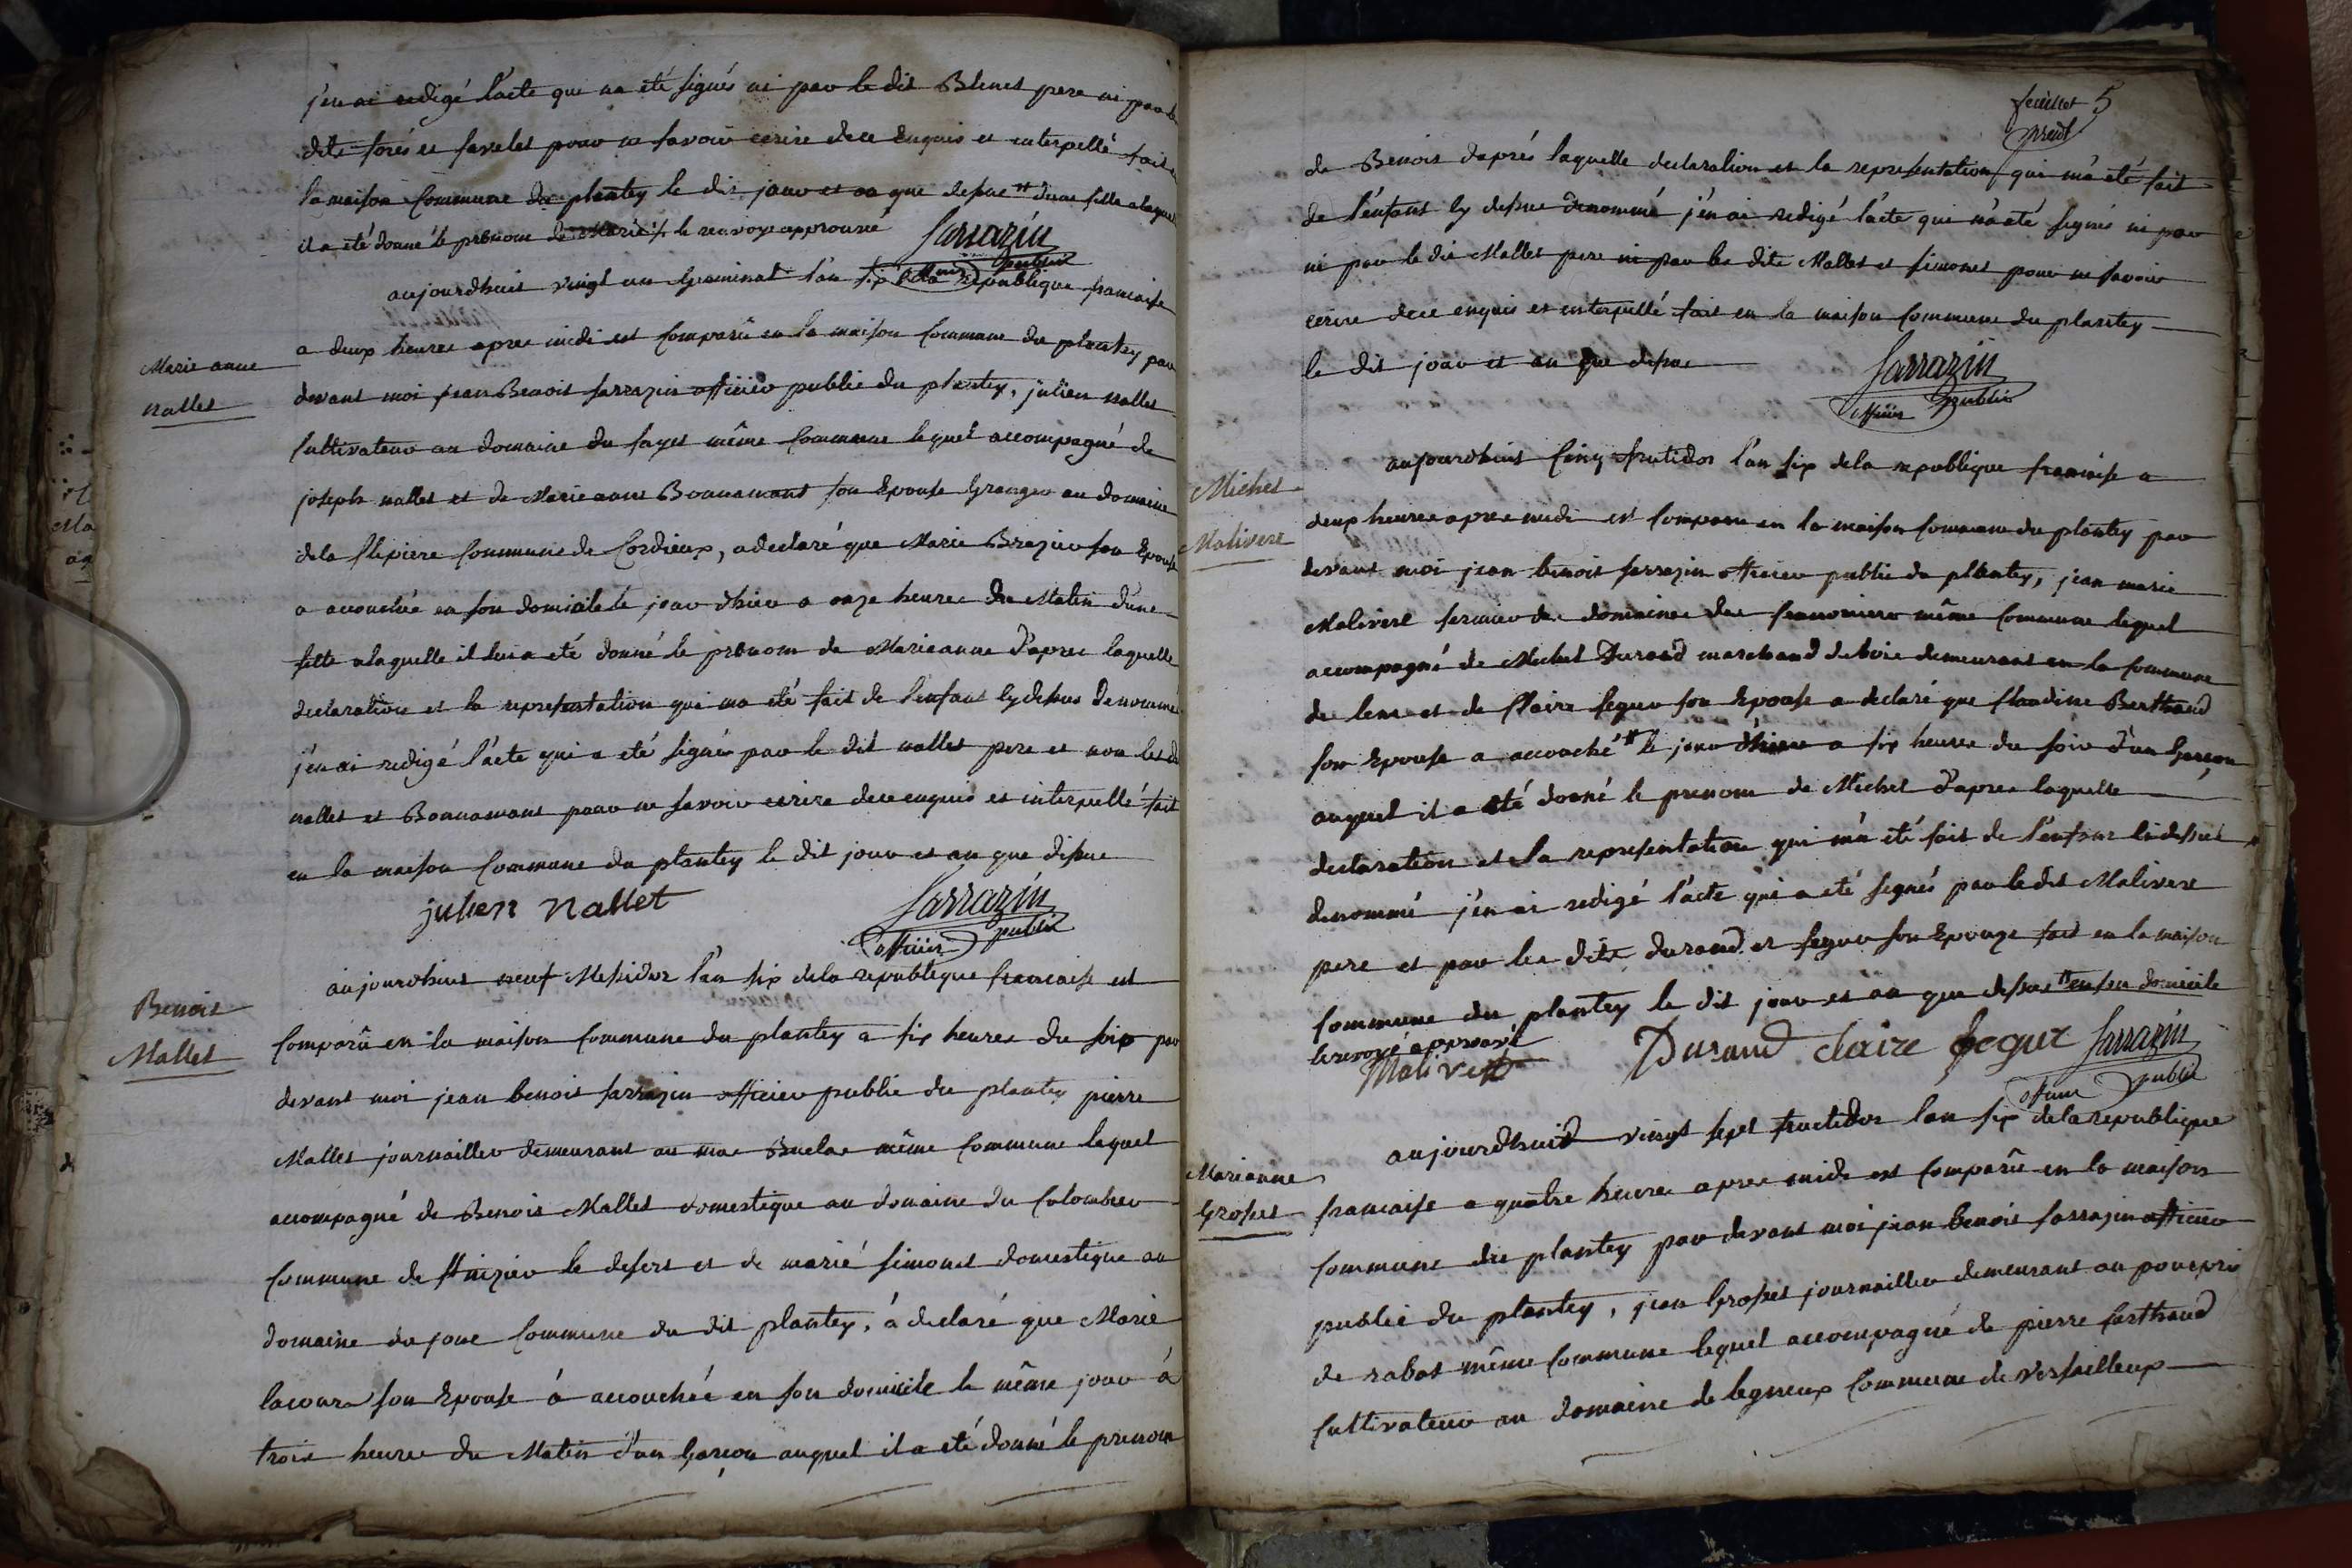 j'en ai redigé l'acte qui na été signés ni par le dit Blenet pere ni par les
dits forés et favelet pour ne savoir ecrire dece enquis et interpellé fait
la maison Commune du plantey le dis jour et an que dessus # d'une fille alaquelle
il a été donné le prénom de Marie // le renvoye approuvé Sarrazin
officier public
aujourdhuit vingt un Germinal l'an six dela republique francaise
Marie anne
nallet
a deux heures apres midi est Comparû en la maison Commune du plantey par
devant moi jean Benoit Sarrazin officier public du plantey, julien nallet
Cultivateur au domaine du fayet même Commune lequel accompagné de
joseph nallet et de Marie anne Bonnamant son Epouse Granger au domaine
dela Commune de Cordieux, a declaré que Marie Brazier son Epouse
a accouchée en son domicile le jour dhier a onze heures du Matin d'une
fille alaquelle il lui a été donné le prénom de Marieanne d'apres laquelle
declaration et la representation qui ma été fait de l'enfant cy dessus denommé
j'en ai redigé l'acte qui a été signés par le dit nallet pere et non les d
nallet et Bonnamant pour ne savoir ecrire dece enquis et interpellé fait
en la maison Commune du plantey le dit jour et an que dessus
julien nallet Sarrazin
officier public
Benoit
Mallet
aujourdhuit neuf Messidor l'an six dela republique francaise est
Comparû en la maison Commune du plantey a six heures du soir par
devant moi jean benoit Sarrazin officier public du plantey pierre
Mallet journaillier demeurant au mas Buclas même Commune lequel
accompagné de Benoit Mallet domestique au domaine du Colombier
Commune de St nizier le desert et de marie simonet domestique au
domaine du joux Commune du dit plantey, a declaré que Marie
lacour son Epouse á accouchée en son domicile le même jour á
trois heures du Matin d'un Garcon auquel il a été donné le prenom
feuillet 5
de Benoit daprés laquelle declaration et la representation qui má été fait
de l'enfant Cy dessus denommé j'en ai redigé l'acte qui n'a été signés ni par
ni par le dit Mallet pere ni par les dits Mallet et simonet pour ne savoir
ecrire dece enquis et interpellé fait en la maison Commune du plantey
le dit jour et an que dessus Sarrazin
officier public
Michel
Malivere
aujourdhuit Cinq frutidor l'an six dela republique francaise a
deux heures apres midi est Comparu en la maison Commune du plantey par
devant moi jean benoit Sarrazin officier public du plantey, jean marie
Malivere fermier des domaines des même Commune lequel
accompagné de Michel Durand marchand de bois demeurant en la Commune
de lent et de Claire segur son Epouse a declaré que Claudine Berthaud
son Epouse a accouché # le jour dhier a six heures du soir d'un Garcon
auquel il a été donné le prenom de Michel d'apres laquelle
declaration et la representation qui má été fait de l'enfant ci dessus
denommé j'en ai redigé l'acte qui a été signés par le dit Malivere
pere et par les dits durand et segur son Epouze fait en la maison
Commune du plantey le dit jour et an que dessus # en son domicile
le renvoyé approuvé
Malivert Durand Claire Segur Sarrazin
officier public
Marianne
Grosset
aujourdhuit vingt sept fructidor l'an six dela republique
francaise a quatre heures apres midi est Comparû en la maison
Commune du plantey par devant moi jean benoit Sarrazin officier
public du plantey, jean Grosset journaillier demeurant au pourpri
de rabat même Commune lequel accompagné de pierre
Cultivateur au domaine de legneux Commune de versailleux